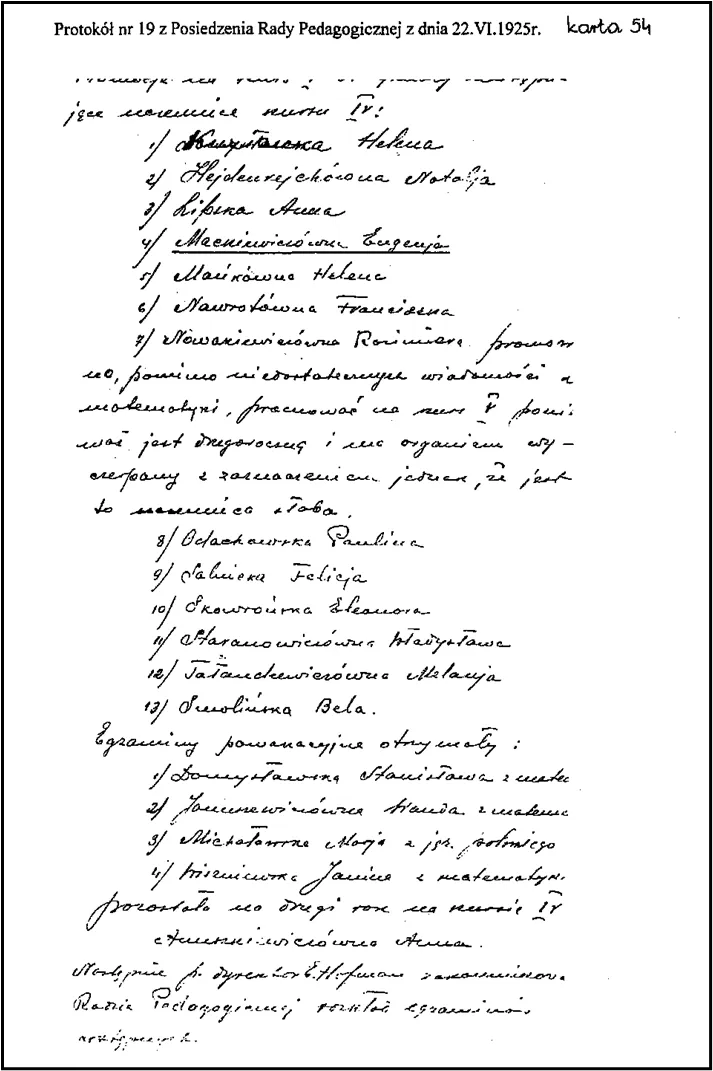 Protokół nr 19 z Posiedzenia Rady Pedagogicznej z dnia 22.VI.1925r. karta 54
jące uczennice kursu IV:
1) Helena
2) Hejdenrejchówna Natalja
3) Lipska Anna
4) Mackiewiczówna Eugenja
5) Mańkówna Helena
6) Nawrotówna Franciszka
7) Nowakiewiczówna Kazimiera
no, pomimo niedostatecznych wiadomości z
matematyki, na kurs V ponie
waż jest drugoroczną i ma organizm wy-
czerpany z zaznaczeniem jednak, że jest
to uczennica słaba.
8) Ostachowska Paulina
9) Felicja
10) Skowrońska Eleonora
11) Staranowiczówna Władysława
12) Tałandziewiczówna Melanja
13) Smolińska Bela.
Egzaminy powakacyjne otrzymały:
1) Domysławska Stanisława z matem
2) Januszewiczówna Wanda z matem
3) Michałowska Marja z jęz. polskiego
4) Wiszniewska Janina z matematyki
pozostała na drugi rok na kursie IV
Anna.
Następnie p. dyrektor E. Hofman zakomunikow.
Radzie Pedagogicznej rozkład egzaminów